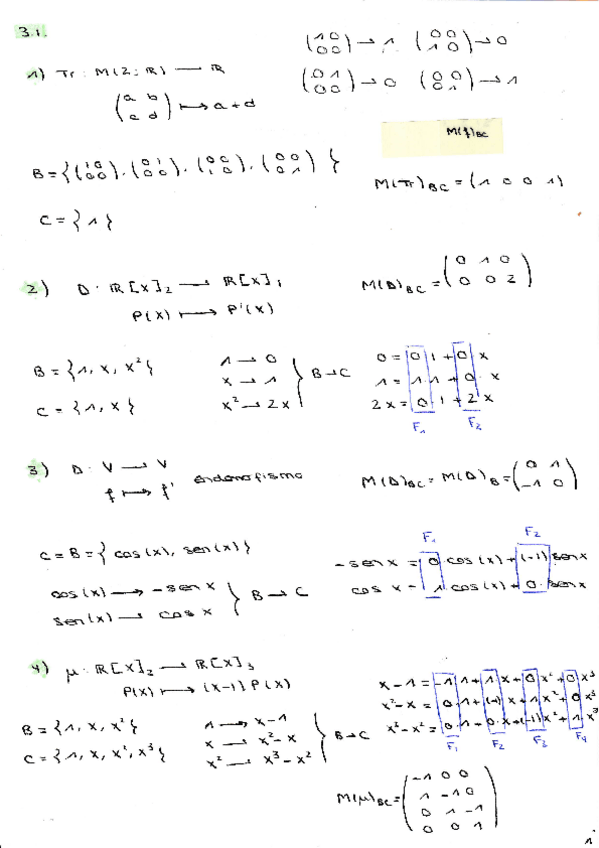 3.1.
1) Tr : M(2; ℝ) → ℝ
(a b
c d) ↦ a+d
(1 0
0 0) → 1 (0 0
1 0) → 0
(0 1
0 0) → 0 (0 0
0 1) → 1
M(f)BC
B = {(1 0
0 0), (0 1
0 0), (0 0
1 0), (0 0
0 1)}
M(Tr)BC = (1 0 0 1)
C = {1}
2) D : ℝ[x]₂ → ℝ[x]₁
P(x) ↦ P'(x)
M(D)BC = (0 1 0
0 0 2)
B = {1, x, x²}
C = {1, x}
1 → 0
x → 1
x² → 2x
B → C
0 = 0 1 + 0 x
1 = 1 1 + 0 · x
2x = 0 · 1 + 2 x
F₁ F₂
3) D : V → V
f ↦ f'
endomofismo
M(D)BC = M(D)B = (0 1
-1 0)
C = B = {cos(x), sen(x)}
cos(x) → -sen x
sen(x) → cos x
B → C
F₁ F₂
-sen x = 0 · cos(x) + (-1) sen x
cos x = 1 cos(x) + 0 · sen x
4) μ : ℝ[x]₂ → ℝ[x]₃
P(x) ↦ (x-1) P(x)
B = {1, x, x²}
C = {1, x, x², x³}
1 → x-1
x → x²-x
x² → x³-x²
B → C
x-1 = -1 1 + 1 x + 0 x² + 0 x³
x²-x = 0 · 1 + (-1) x + 1 x² + 0 x³
x³-x² = 0 · 1 + 0 · x + (-1) x² + 1 · x³
F₁ F₂ F₃ F₄
M(μ)BC = (-1 0 0
1 -1 0
0 1 -1
0 0 1)
1